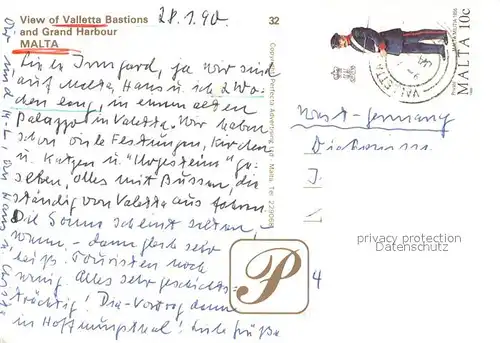 View of Valletta Bastions
and Grand Harbour
MALTA
28.1.90.
32
Liebe Irmgard, ja wir sind
auf Malta, Hans u. ich 2 Wo-
chen lang, in einem alten
Palazzo in Valetta. Wir haben
schon viele Festungen, Kirchen
u. Katzen u. "Hogesteins" ge-
sehen, alles mit Bussen, die
ständig von Valetta aus fahren.
Die Sonne scheint selten,
wenn, - dann gleich sehr
heiß. Touristen noch
wenig. Alles sehr geschichts-
trächtig! Dia-Vortrag dann
in Hoffnungsthal! Liebe Grüße
Copyright Perfecta Advertising Ltd. Malta Tel 225068
MALTA 10c
VALLETTA
West-Germany
Diakonisse
I.
P
4
privacy protection
Datenschutz